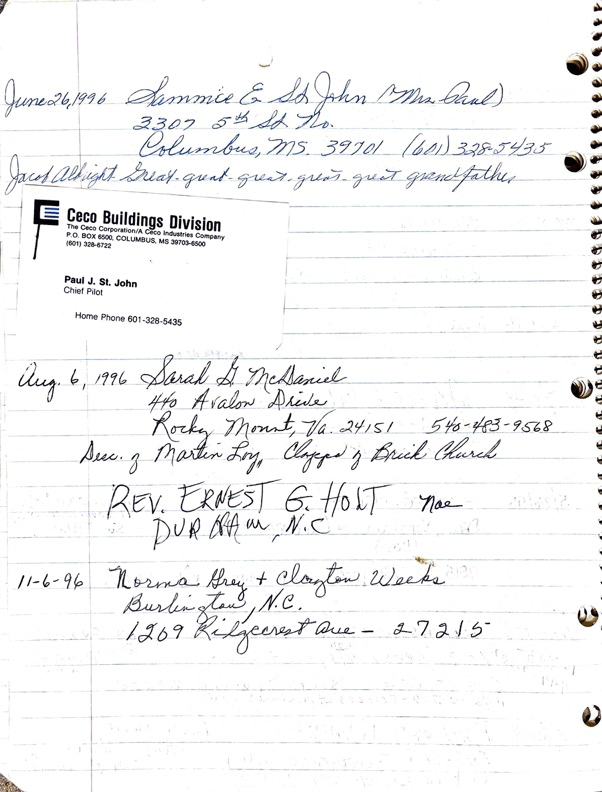 June 26, 1996 Sammie E St John (Mrs. Paul)
3307 5th St. No.
Columbus, MS. 39701 (601) 328-5435
Jacob Albright Great-great-great-great-great grandfather
Ceco Buildings Division
The Ceco Corporation/A Ceco Industries Company
P.O. BOX 6500, COLUMBUS, MS 39703-6500
(601) 328-6722
Paul J. St. John
Chief Pilot
Home Phone 601-328-5435
Aug. 6, 1996 Sarah G. McDaniel
440 Avalon Drive
Rocky Mount, Va. 24151 540-483-9568
Desc. of Martin Loy, Clapps of Brick Church
REV. ERNEST G. HOLT Noe
DURHAM, N.C
11-6-96 Norma Grey + Clayton Weeks
Burlington, N.C.
1269 Ridgecrest Ave - 27215